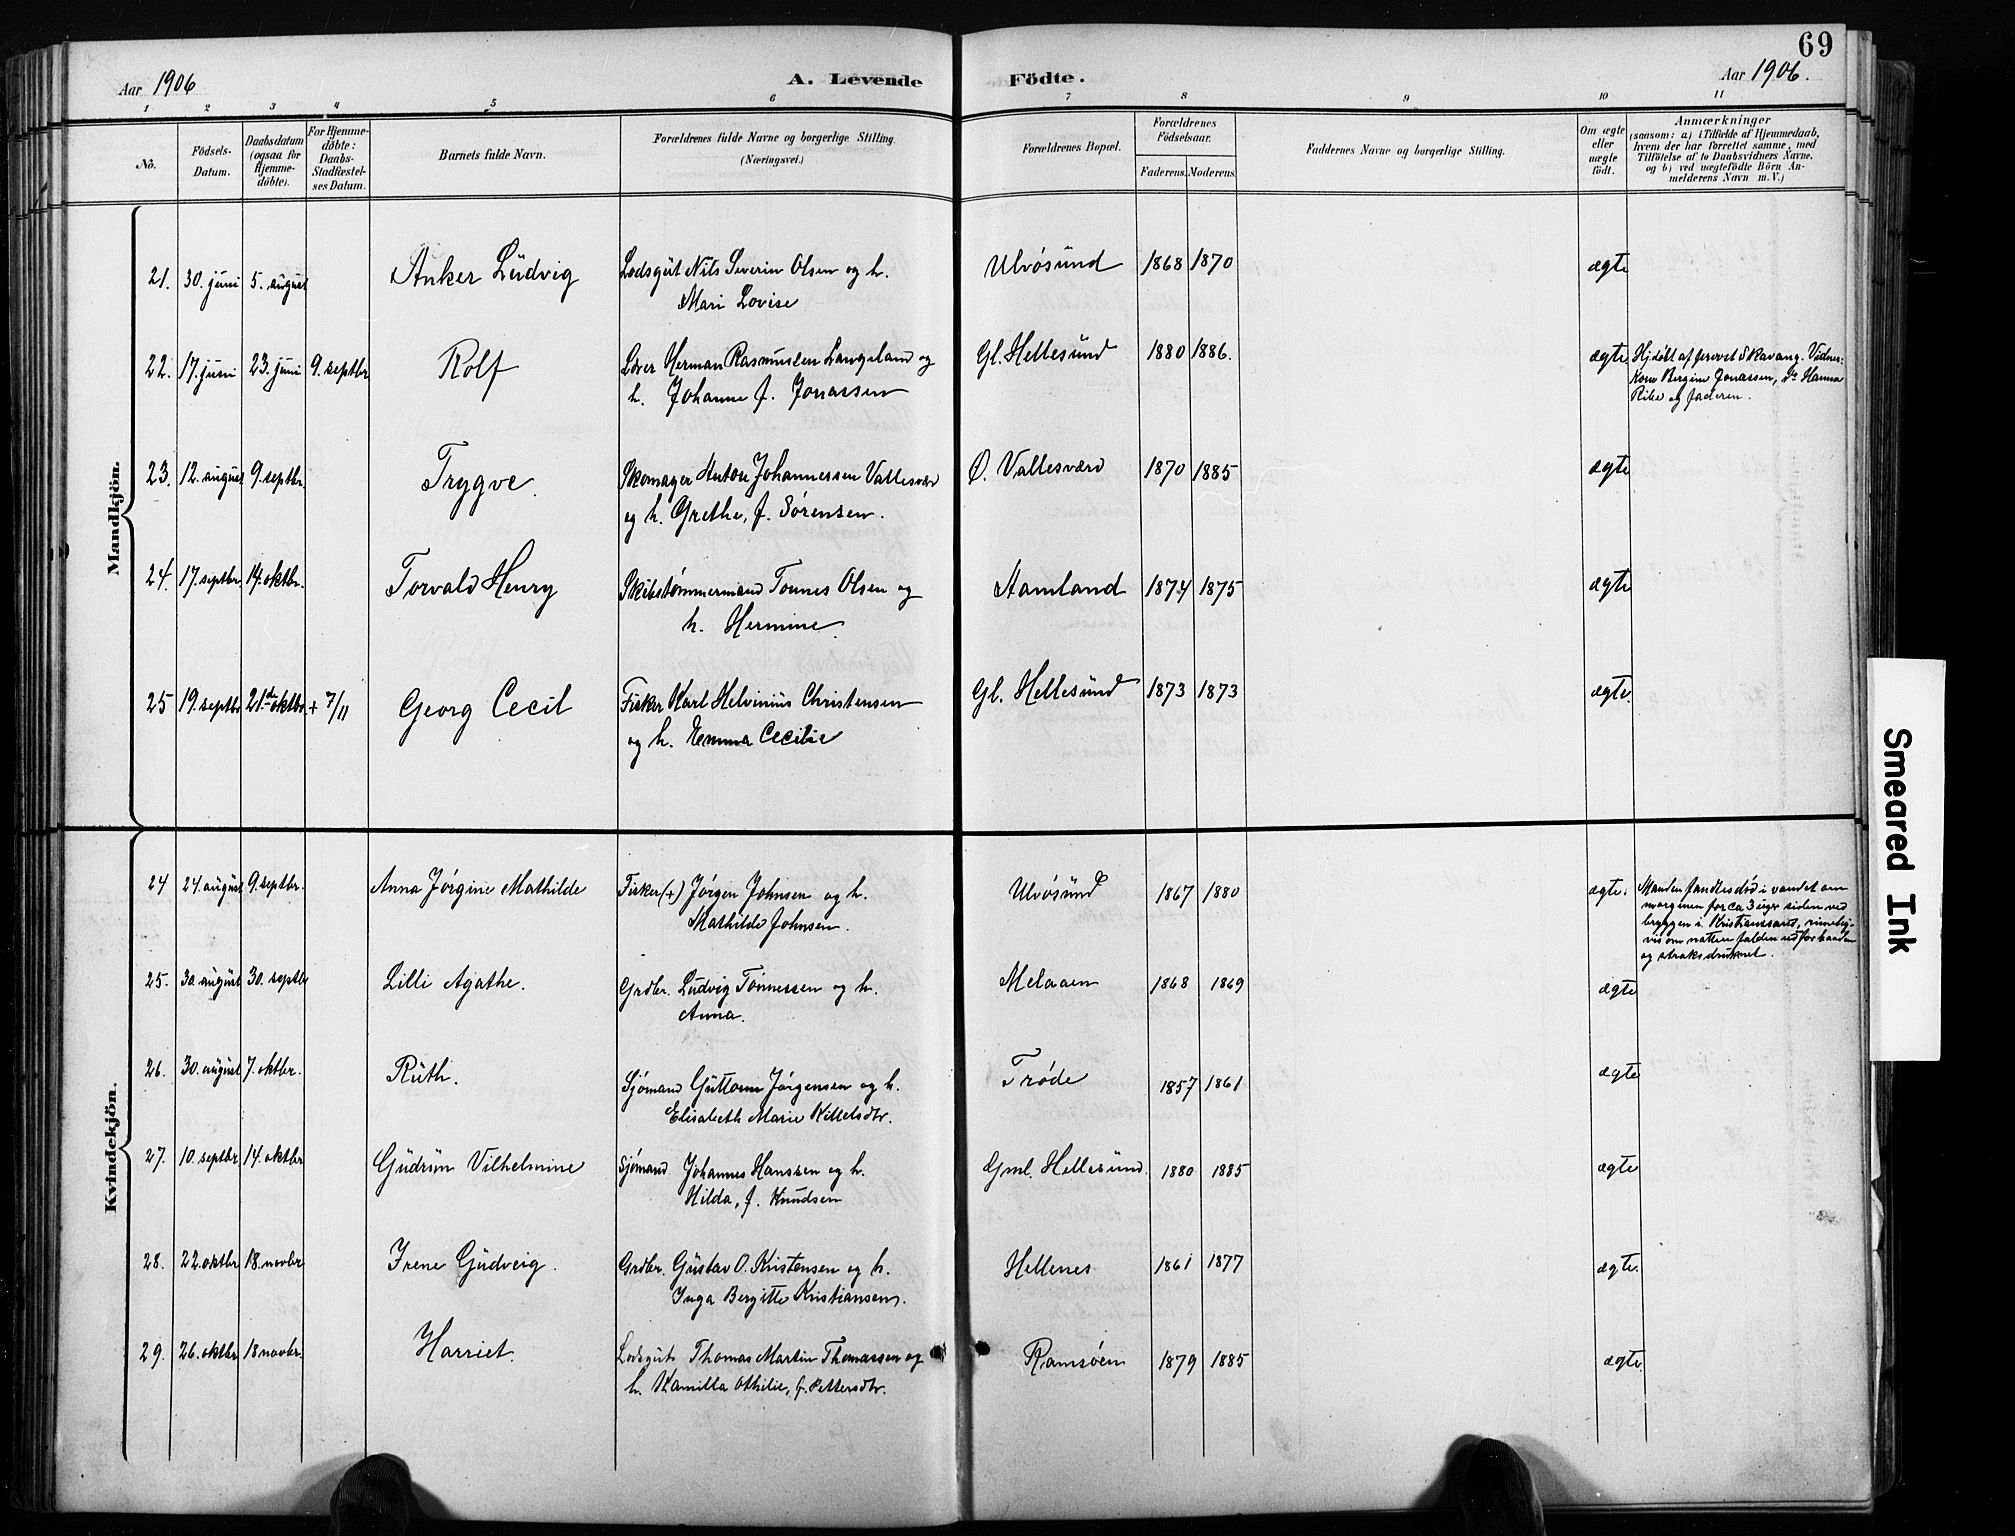 69
Aar 1906
A. Levende Födte.
Aar 1906.
1 2 3 4 5 6 7 8 9 10 11
No.
Födsels-Datum.
Daabsdatum (ogsaa for Hjemme-döbte).
For Hjemme-döbte: Daabs-Stadfæstel-ses Datum.
Barnets fulde Navn.
Forældrenes fulde Navne og borgerlige Stilling.
(Næringsvei.)
Forældrenes Bopæl.
Forældrenes Födselsaar.
Faderens. Moderens.
Faddernes Navne og borgerlige Stilling.
Om ægte eller uægte födt.
Anmærkninger
(saasom: a) i Tilfælde af Hjemmedaab,
hvem der har forrettet samme, med
Tilföielse af to Daabsvidners Navne.
og b) ved uægtefödte Börn An-
melderens Navn m. V.)
Mandkjön.
21. 30. juni 5. august Anker Ludvig Lodsgut Nils Severin Olsen og h. Ulvøsund 1868 1870 ægte
Mari Lovise
22. 17. juni 23. juni 9. septbr Rolf Herman Rasmussen Langeland og Gl. Hellesund 1880 1886. ægte Hj.døbt af Skavang. Vidner:
h. Johanne f. Jonassen Kone Bergine Jonassen, Do Hanna
og faderen.
23. 12. august 9. septbr. Trygve. Skomager Anton Johannessen Vallesværd Ø. Vallesværd 1870 1885 ægte
og h. Grethe, f. Sørensen.
24. 17. septbr. 14. oktbr. Torvald Henry Skibstømmermand Tønnes Olsen og Aamland 1874 1875 ægte
h. Hermine.
25 19. septbr 21de oktbr. + 7/11 Georg Cecil Fisker Karl Helvinius Christensen Gl. Hellesund 1873 1873 ægte.
og h. Emma Cecilie
Kvindekjön.
24 24. august 9. septbr. Anna Jørgine Mathilde Fisker (+) Jørgen Johnsen og h. Ulvøsund 1867 1880 ægte. Manden fandtes død i vandet om
Mathilde Johnsen. morgenen for ca 3 uger siden ved
bryggen i Kristianssand, rimelig-
vis om natten falden ud for baaden
og straks druknet.
25. 30. august 30. septbr Lilli Agathe. Grdbr. Ludvig Tønnessen og h. Melaaen 1868 1869 ægte
Anna.
26. 30. august 7. oktbr. Ruth. Sjømand Guttorm Jørgensen og h. Trøde 1857 1861 ægte
Elisabeth Marie Killelsdtr.
27. 10. septbr 14. oktbr Gudrun Vilhelmine Sjømand Johannes Hanssen og h. Gml. Hellesund. 1880 1885 ægte
Hilda, f. Knudsen
28. 22. oktbr 18. novbr Irene Gudveig. Grdbr. Gustav O. Kristensen og h. Hellenes 1861 1877 ægte.
Inga Bergitte Kristiansen.
29. 26. oktbr 18 novbr. Harriet. Lodsgut Thomas Martin Thomassen og Ramsøen 1879 1885 ægte
h. Kamilla Othilie, f. Pettersdtr.
Smeared Ink